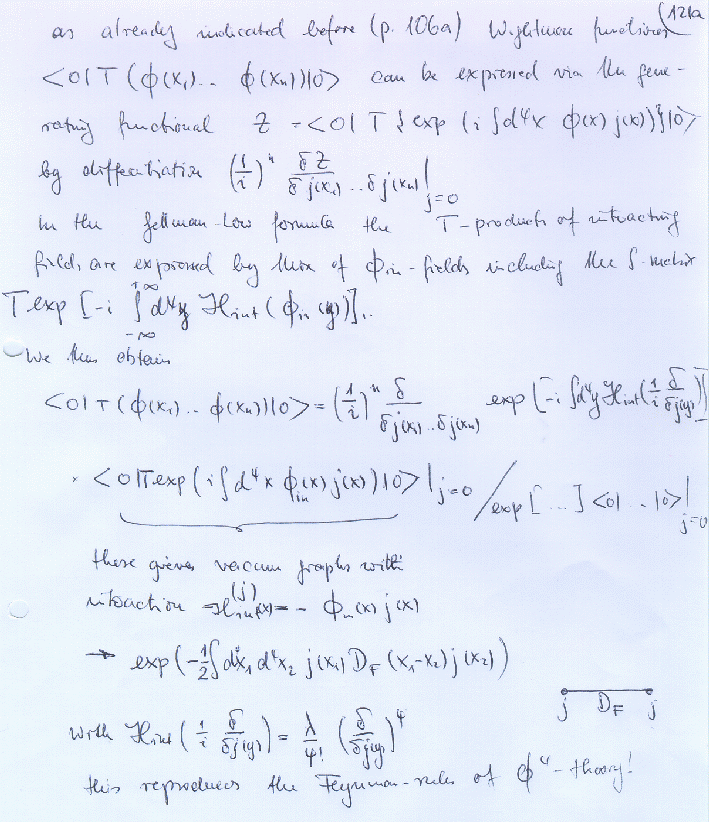 (121a
as already indicated before (p. 106a) Wightman functions
<0|T (ϕ(x₁)... ϕ(xₙ)|0> can be expressed via the gene-
rating functional Z = <0| T {exp (i ∫d⁴x ϕ(x) j(x))}|0>
by differentiation (1/i)ⁿ δZ / δj(x₁)...δj(xₙ) |j=0
In the Gellman-Low formula the T-products of interacting
fields are expressed by those of ϕin-fields including the S-matrix
T exp [-i ∫_{-∞}^{+∞} d⁴y ℋint (ϕin (y))].
We thus obtain
<0|T (ϕ(x₁)... ϕ(xₙ))|0> = (1/i)ⁿ δ / δj(x₁)..δj(xₙ) exp [-i ∫d⁴y ℋint (1/i δ/δj(y))]
× <0|T exp (i ∫ d⁴x ϕin(x) j(x)) |0> |j=0 / exp [ ... ] <0| .. |0> |j=0
these gives vacuum graphs with
interaction ℋint(x)^(j) = - ϕin(x) j(x)
→ exp (-1/2 ∫ d⁴x₁ d⁴x₂ j(x₁) D_F (x₁-x₂) j(x₂))
j D_F j
with ℋint (1/i δ/δj(y)) = λ/4! (δ/δj(y))⁴
this reproduces the Feynman-rules of ϕ⁴-theory!